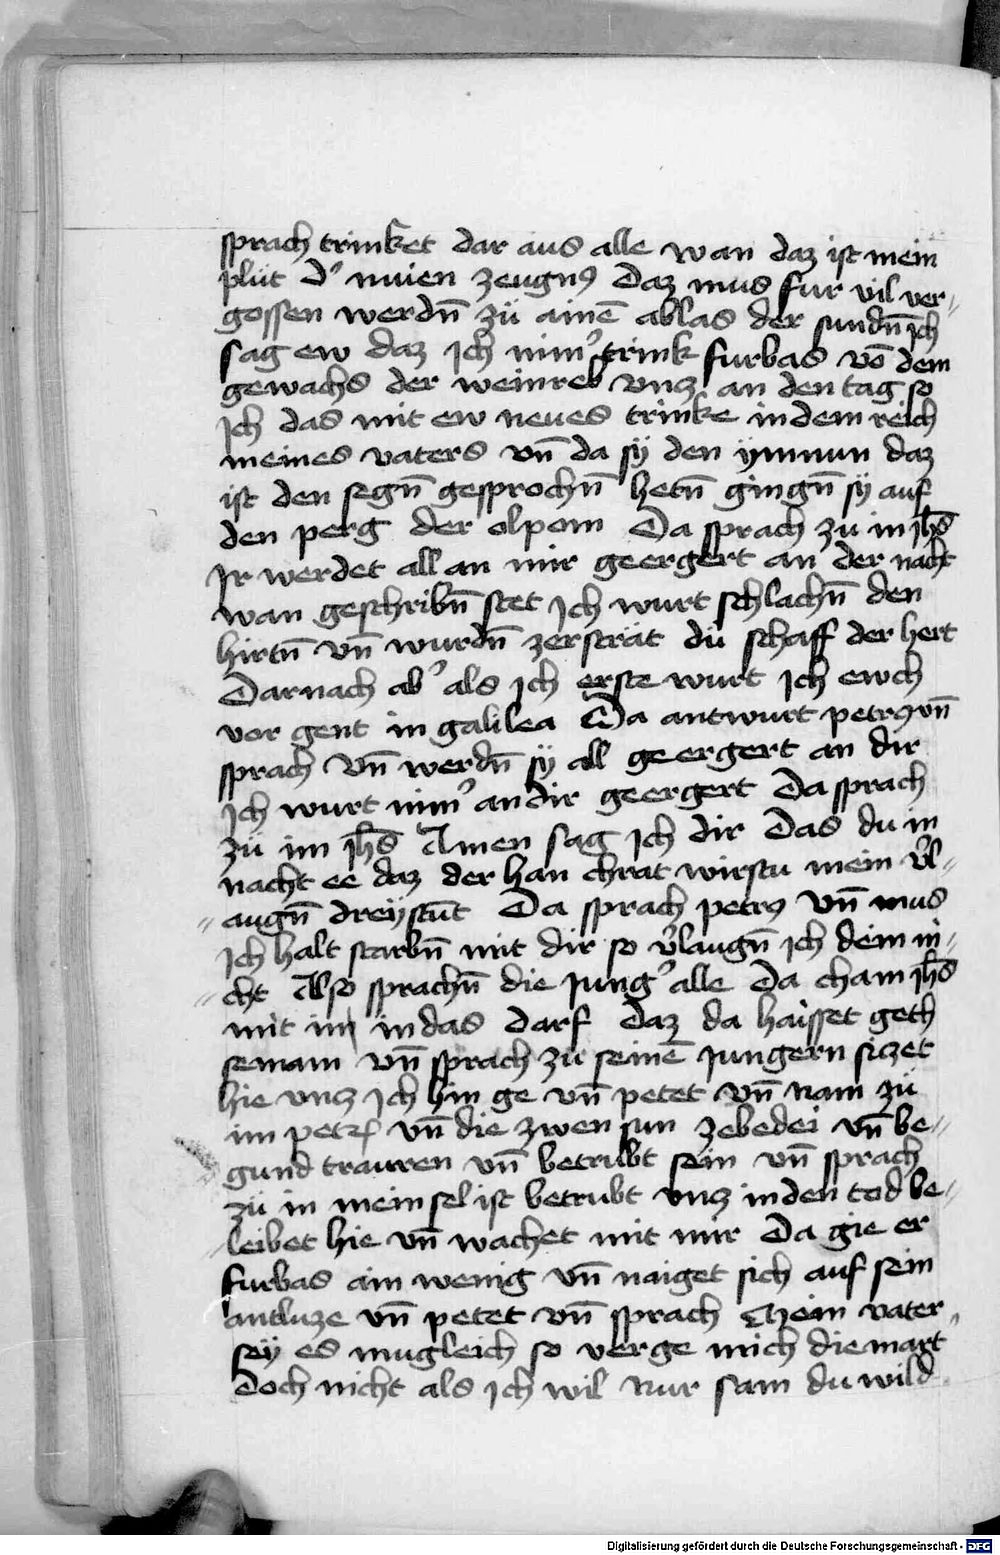 sprach trinket dar aus alle wan daz ist mein
plüt d' nuien zeugnꝰ Daz mus fur vil ver„
gossen werdn̄ zü ainē ablas der sundn̄ ich
sag ew daz Ich nim' trink furbas võ dem
gewachs der weinreb vncz an den tag so
Ich das mit ew neues trinke in dem reich
meines vaters vn̄ da sy̎ den y̎mnun daz
ist den segn̄ gesprochn̄ hetn̄ gingn̄ sy̎ auf
den perg der olpom Da sprach zu in Jh̄s
Ir werdet all an mir geergert an der nacht
wan geschribn̄ stet Ich wurt schlachn̄ den
hirtn̄ vn̄ wurdn̄ zersträt dü schaff der hert
Darnach ab' als Ich erste wurt Ich ewch
vor gent in galilea Da antwurt petrꝰ vn̄
sprach Vn̄ werdn̄ sy̎ all geergert an dir
Ich wurt nim' an dir geergert Da sprach
zü im Jh̄s Amen sag Ich dir Das du in
nacht ee daz der han chrat wirstu mein v̕l„
„augn̄ drey̎stūt Da sprach petrꝰ Vn̄ mus
Ich halt starbn̄ mit dir so v̕laugn̄ Ich dein ni„
„cht Also sprachn̄ die Jung' alle Da cham Jh̄s
mit im in das darf Daz da haisset geth
semani vn̄ sprach zu seinē Jungern siczet
hie vncz Ich hin ge vn̄ petet vn̄ nam zü
im petrꝭ vn̄ die zwen sun zebedei vn̄ be„
gund trauren vn̄ betrubt sein vn̄ sprach
zü in mein sel ist betrubt vncz in den tod be„
„leibet hie vn̄ wachet mit mir Da gie er
furbas ain wenig vn̄ naiget sich auf sein
antlucze vn̄ petet vn̄ sprach Mein vater„
sey̎ es mugleich so verge mich die mart
Doch nicht als Ich wil Nur sam du wild
Digitalisierung gefördert durch die Deutsche Forschungsgemeinschaft - DFG